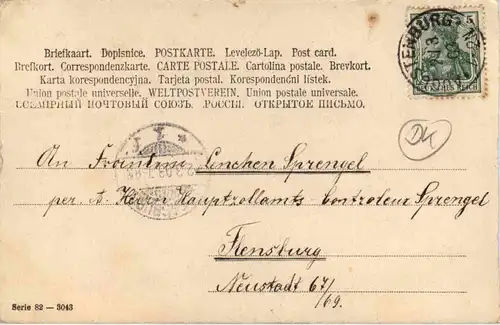 Briefkaart. Dopisnice. POSTKARTE. Levelező-Lap. Post card.
Brefkort. Correspondenzkarte. CARTE POSTALE. Cartolina postale. Brevkort.
Karta korespondencyjna. Tarjeta postal. Korespondenční lístek.
Union postale universelle. WELTPOSTVEREIN. Union postale universale.
ВСЕМІРНЫЙ ПОЧТОВЫЙ СОЮЗЪ. РОССІЯ. ОТКРЫТОЕ ПИСЬМО.
5
DEUTSCHES REICH
DK
An Fräulein Lenchen Sprengel
per. A. Herrn Hauptzollamts Controleur Sprengel
Flensburg
Neustadt 67/
69.
Serie 82 — 3043